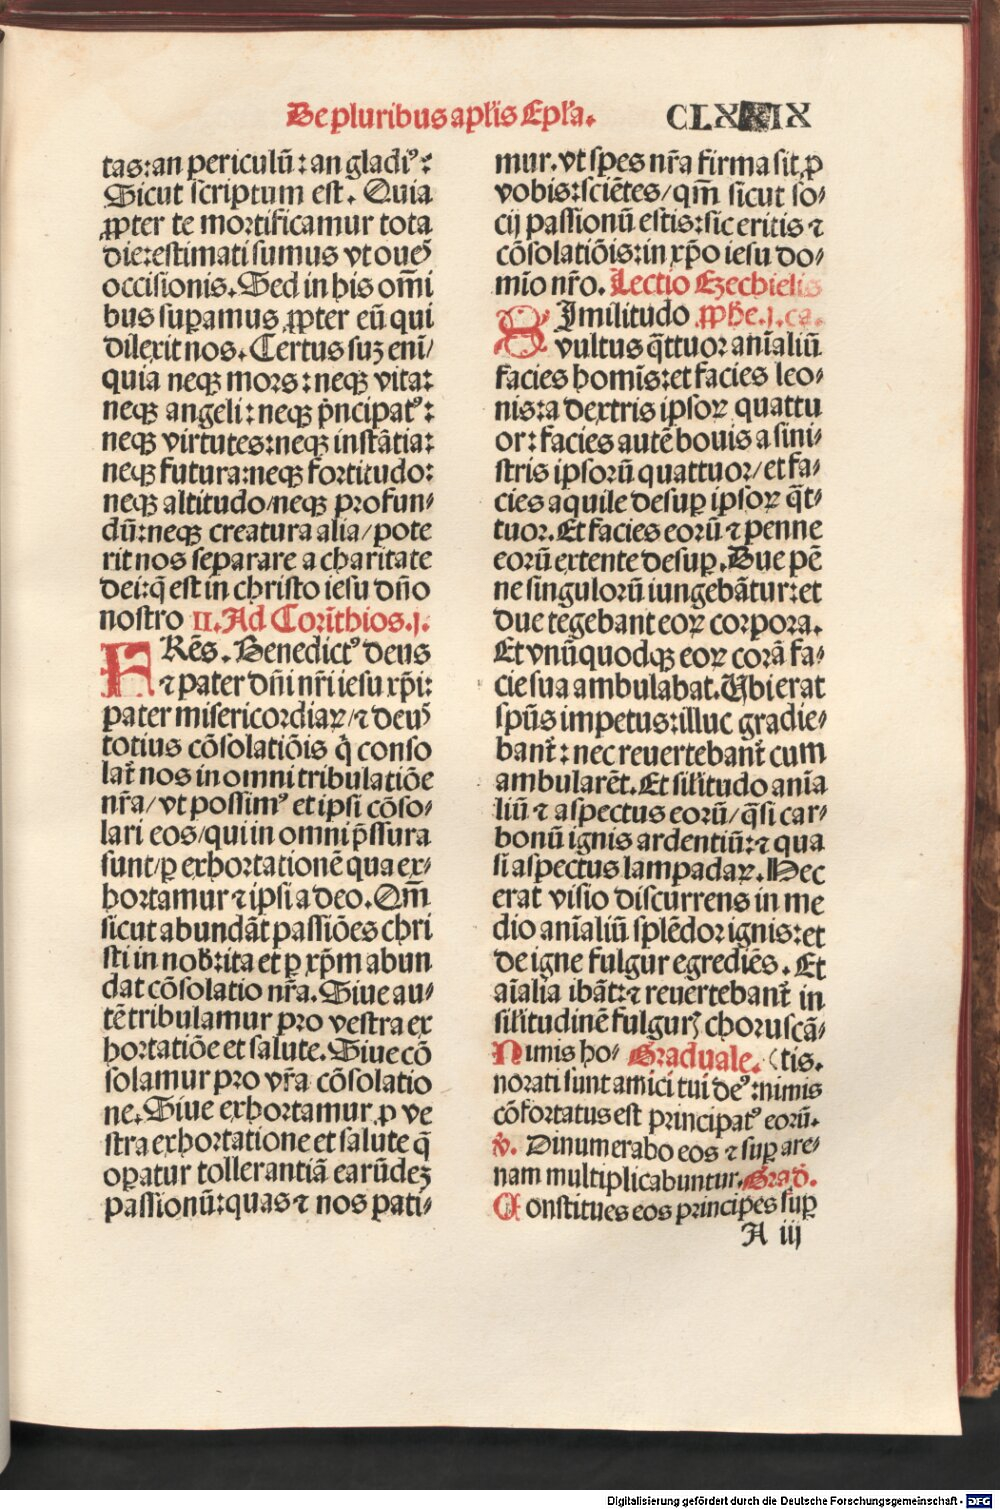 De pluribus apl'is Epl'a.
CLXXIX
tas:an periculũ:an gladiꝰ:
Sicut scriptum est. Quia
ꝓpter te mortificamur tota
die:estimati sumus vt oues
occisionis. Sed in his om̃i
bus suꝑamus ꝓpter eũ qui
dilexit nos. Certus suꝫ eni᷑/
quia neqꝫ mors:neqꝫ vita:
neqꝫ angeli:neqꝫ p̃ncipatꝰ:
neqꝫ virtutes:neqꝫ instãtia:
neqꝫ futura:neqꝫ fortitudo:
neqꝫ altitudo/neqꝫ profun⸗
dũ:neqꝫ creatura alia/pote
rit nos separare a charitate
dei:q̃ est in christo iesu dño
nostro II. Ad Corĩthios.j.
FRẽs. Benedictꝰ deus
⁊ pater dñi nr̃i iesu xp̃i:
pater misericordiaꝝ/⁊ deus
totius cõsolatiõis q̇ conso
lat᷑ nos in omni tribulatiõe
nr̃a/vt possimꝰ et ipsi cõso⸗
lari eos/qui in omni p̃ssura
sunt/ꝑ exhortationẽ qua ex⸗
hortamur ⁊ ipsi a deo. Qm̃
sicut abundãt passiões chri
sti in nob̾:ita et ꝑ xp̃m abun
dat cõsolatio nr̃a. Siue au⸗
tẽ tribulamur pro vestra ex
hortatiõe et salute. Siue cõ
solamur pro vr̃a cõsolatio
ne. Siue exhortamur ꝓ ve
stra exhortatione et salute q̃
oꝑatur tollerantiã earũdeꝫ
passionũ:quas ⁊ nos pati⸗
mur. vt spes nr̃a firma sit ꝓ
vobis:sciẽtes/qm̃ sicut so⸗
cij passionũ estis:sic eritis ⁊
cõsolatiõis:in xp̃o iesu do⸗
mĩo nr̃o. Lectio Ezechielis
SImilitudo ꝓphe.j.ca.
vultus q̃ttuor anĩaliũ
facies homĩs:et facies leo⸗
nis:a dextris ipsoꝝ quattu
or:facies autẽ bouis a sini⸗
stris ipsorũ quattuor/et fa⸗
cies aquile desuꝑ ipsoꝝ q̃t⸗
tuor. Et facies eorũ ⁊ penne
eorũ extente desuꝑ. Due pẽ
ne singulorũ iungebãtur:et
due tegebant eoꝝ corpora.
Et vnũquodqꝫ eoꝝ corã fa⸗
cie sua ambulabat. Ubi erat
spũs impetus:illuc gradie⸗
bant᷑:nec reuertebant᷑ cum
ambularẽt. Et sil'itudo anĩa
liũ ⁊ aspectus eorũ/q̃si car⸗
bonũ ignis ardentiũ:⁊ qua
si aspectus lampadaꝝ. Hec
erat visio discurrens in me
dio anĩaliũ splẽdor ignis:et
de igne fulgur egrediẽs. Et
aĩalia ibãt:⁊ reuertebant᷑ in
sil'itudinẽ fulguris choruscã⸗
Nimis ho⸗ Graduale. (tis.
norati sunt amici tui deꝰ:nimis
cõfortatus est principatꝰ eorũ.
v̾. Dinumerabo eos ⁊ suꝑ are⸗
nam multiplicabuntur. Grad̾.
Constitues eos principes suꝑ
A iij
Digitalisierung gefördert durch die Deutsche Forschungsgemeinschaft - DFG